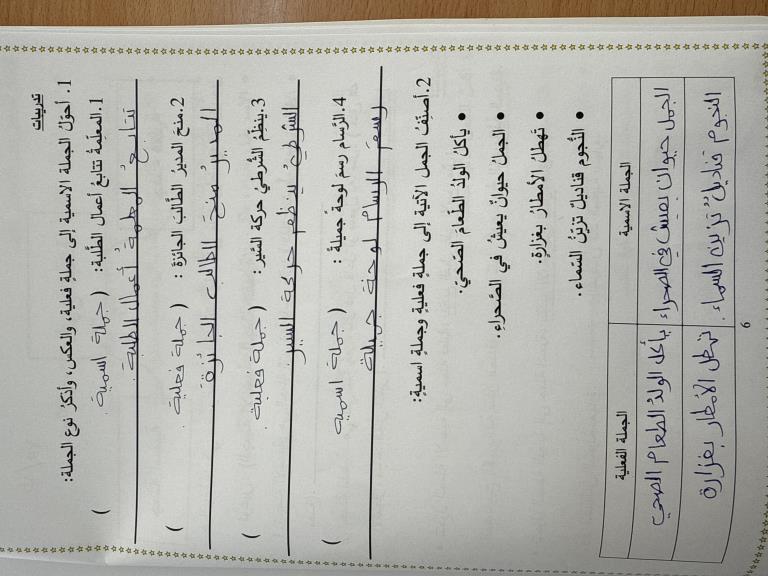 تدريبات
1. أحوّل الجملة الاسمية إلى جملةٍ فعلية، والعكس، وأذكرُ نوع الجملة:
1.المعلّمةُ تتابعُ أعمال الطّلبة: ( جملة اسمية )
تتابعُ المعلمةُ أعمال الطلبة.
2.منحَ المديرُ الطّالبَ الجائزةَ : ( جملة فعلية )
المديرُ منحَ الطالب الجائزة
3.ينظّمُ الشّرطيُ حركة السَّير : ( جملة فعلية )
الشرطيُ ينظم حركة السير
4.الرَّسام رسمَ لوحةً جميلةً : ( جملة اسمية )
رسمَ الرسام لوحة جميلة
2.أصنِّفُ الجمل الآتية إلى جملةٍ فعليةٍ وجملةٍ اسميةٍ:
● يأكلُ الولدُ الطّعامَ الصّحيّ.
● الجملُ حيوانٌ يعيشُ في الصَّحراءِ.
● تهطلُ الأمطارُ بغزارةٍ.
● النُّجوم قناديلٌ تزيّنُ السّماء.
الجملة الاسمية الجملة الفعلية
الجمل حيوان يعيش في الصحراء يأكل الولدُ الطعام الصحي
النجوم قناديلٌ تزين السماء. تهطل الأمطار بغزارة
6